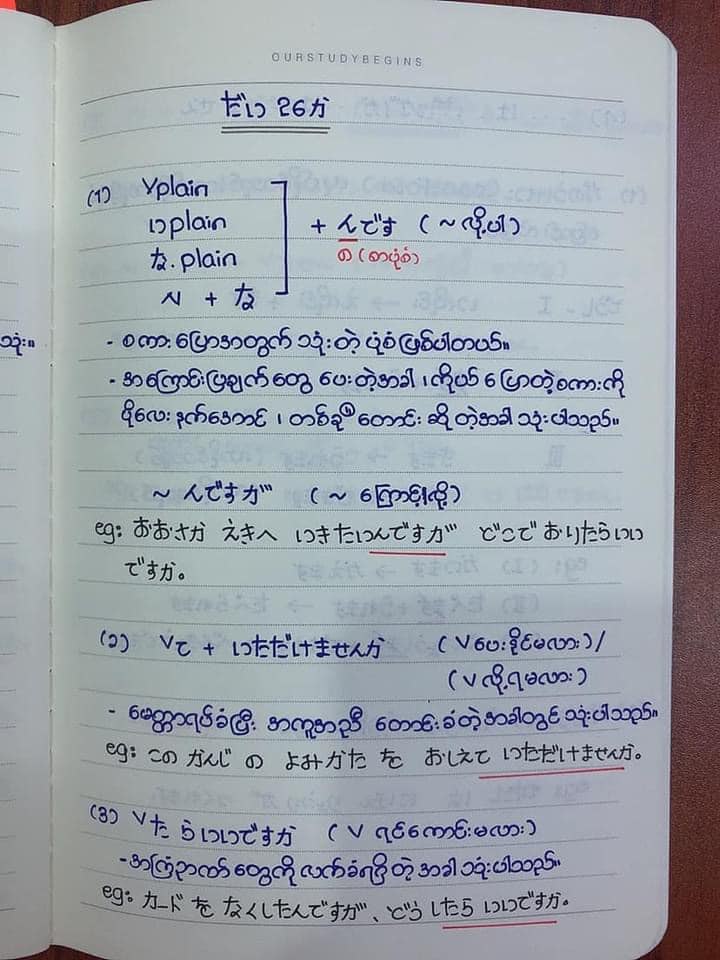 OURSTUDYBEGINS
だい 26か
(၁) Vplain
いplain
な.plain
N + な
+ んです (~လို့ပါ)
の (စာပုံစံ)
- စကားပြောအတွက် သုံးတဲ့ ပုံစံဖြစ်ပါတယ်။
သုံး။
- အကြောင်းပြချက်တွေ ပေးတဲ့အခါ ၊ ကိုယ်ပြောတဲ့စကားကို
ပိုလေးနက်အောင် ၊ တစ်ခုခု တောင်းဆိုတဲ့အခါ သုံးပါသည်။
~ んですが (~ ကြောင့်/လို့)
eg: おおさか えきへ いきたいんですが どこで おりたらいい
ですか。
(၂) Vて + いただけませんか (V ပေးနိုင်မလား)/
(V လို့ရမလား)
- မေတ္တာရပ်ခံပြီး အကူအညီ တောင်းခံတဲ့အခါတွင် သုံးပါသည်။
eg: この かんじ の よみかた を おしえて いただけませんか。
(၃) Vた らいいですか (V ရင်ကောင်းမလား)
- အကြံဉာဏ်တွေကို လက်ခံရရှိတဲ့ အခါ သုံးပါသည်။
eg: カード を なくしたんですが、どう したら いいですか。